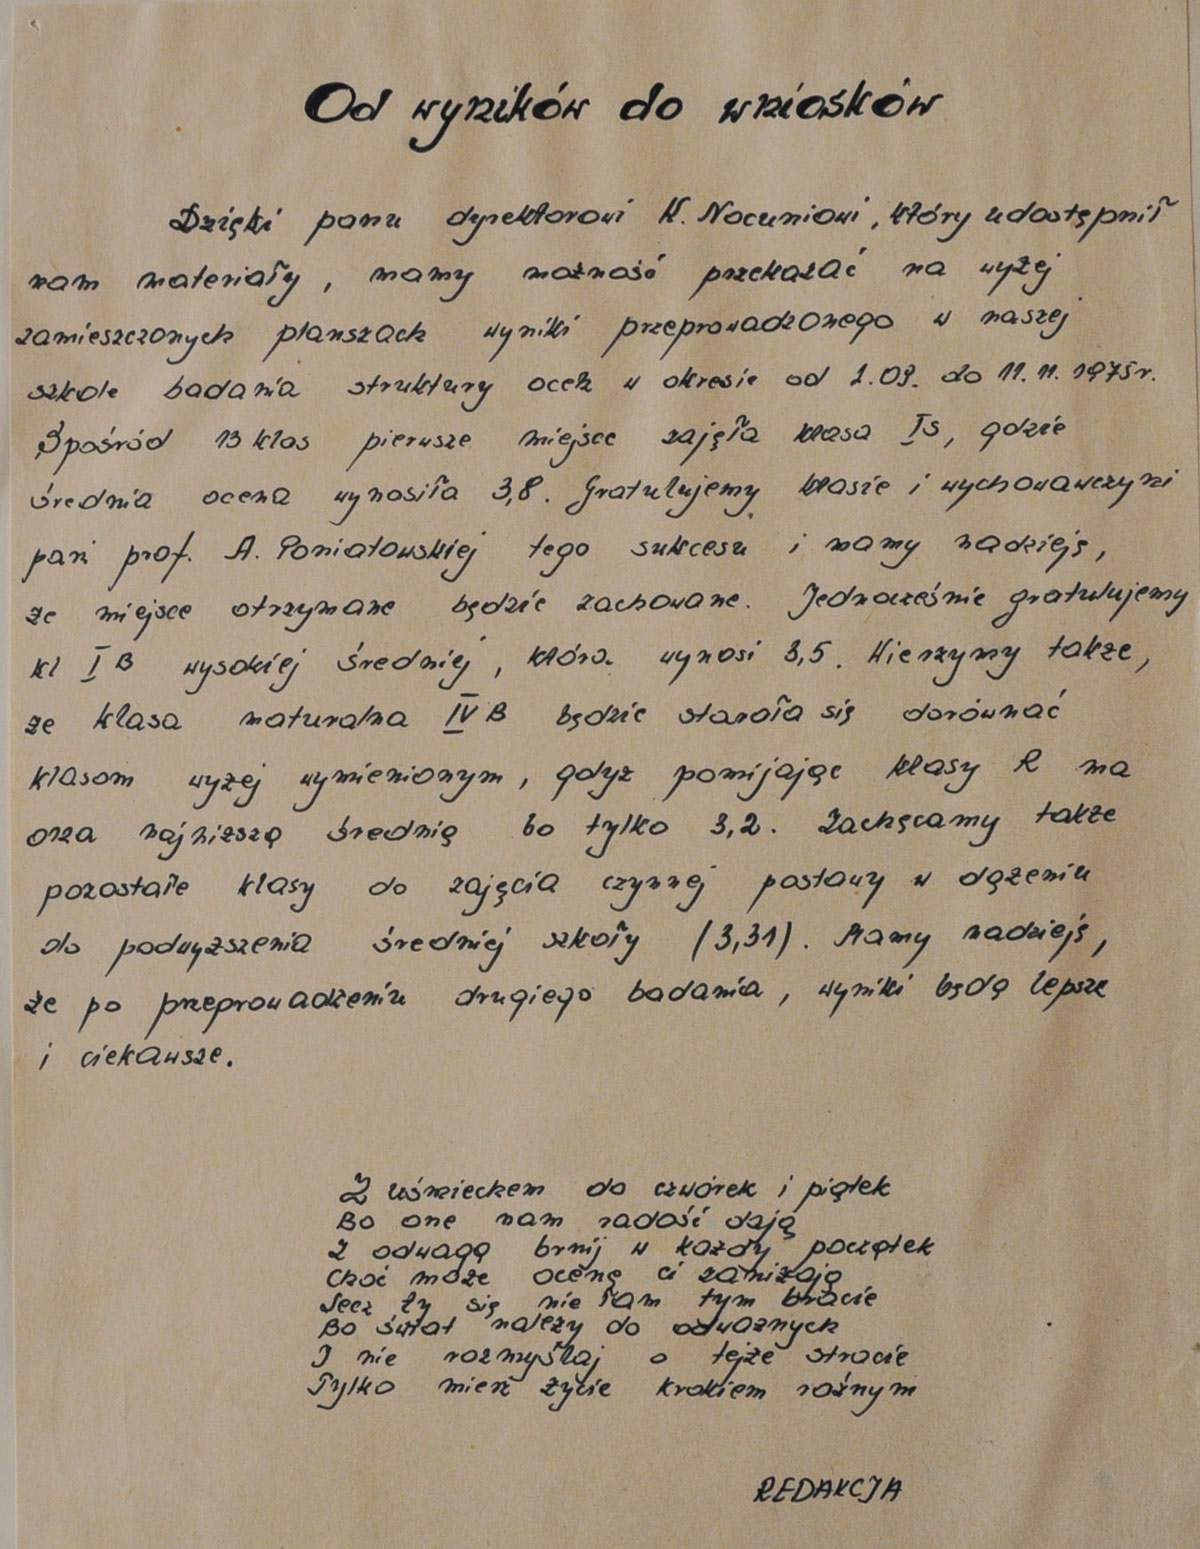 Od wyników do wniosków
Dzięki panu dyrektorowi K. Nocuniowi, który udostępnił
nam materiały, mamy możność przekazać na wyżej
zamieszczonych planszach wyniki przeprowadzonego w naszej
szkole badania struktury ocen w okresie od 1.09. do 11.11.1975r.
Spośród 13 klas pierwsze miejsce zajęła klasa Is, gdzie
średnia ocena wynosiła 3,8. Gratulujemy klasie i wychowawczyni
pani prof. A. Poniatowskiej tego sukcesu i mamy nadzieję,
że miejsce otrzymane będzie zachowane. Jednocześnie gratulujemy
kl I B wysokiej średniej, która wynosi 3,5. Wierzymy także,
że klasa maturalna IV B będzie starała się dorównać
klasom wyżej wymienionym, gdyż pomijając klasy R ma
ona najniższą średnią bo tylko 3,2. Zachęcamy także
pozostałe klasy do zajęcia czynnej postawy w dążeniu
do podwyższenia średniej szkoły (3,31). Mamy nadzieję,
że po przeprowadzeniu drugiego badania, wyniki będą lepsze
i ciekawsze.
Z uśmiechem do czwórek i piątek
Bo one nam radość dają
Z odwagą brnij w każdy początek
Choć może ocenę ci zaniżają
Lecz ty się nie łam tym bracie
Bo świat należy do odważnych
I nie rozmyślaj o tejże stracie
Tylko mierz życie krokiem raźnym
REDAKCJA